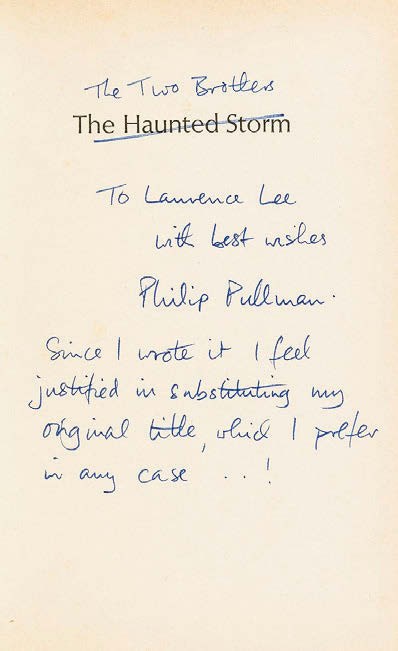 The Two Brothers
The Haunted Storm
To Laurence Lee
with best wishes
Philip Pullman.
Since I wrote it I feel
justified in substituting my
original title, which I prefer
in any case ...!